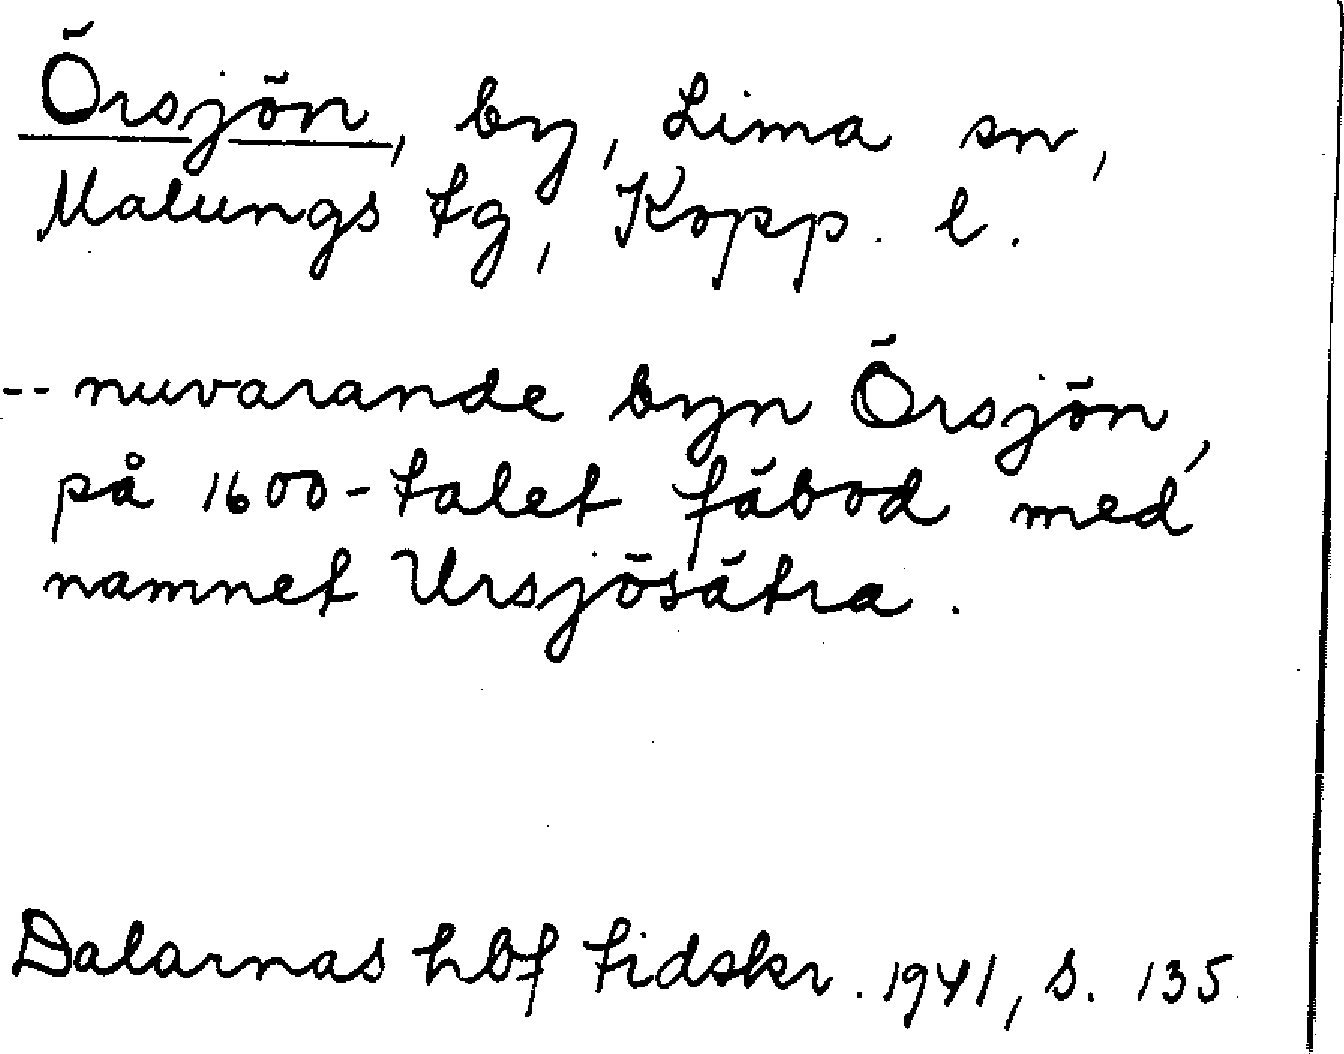 Örsjön, by, Lima sn,
Malungs tg, Kopp. l.
-- nuvarande byn Örsjön,
på 1600-talet fäbod med
namnet Ursjösätra.
Dalarnas hbf tidskr. 1941, s. 135